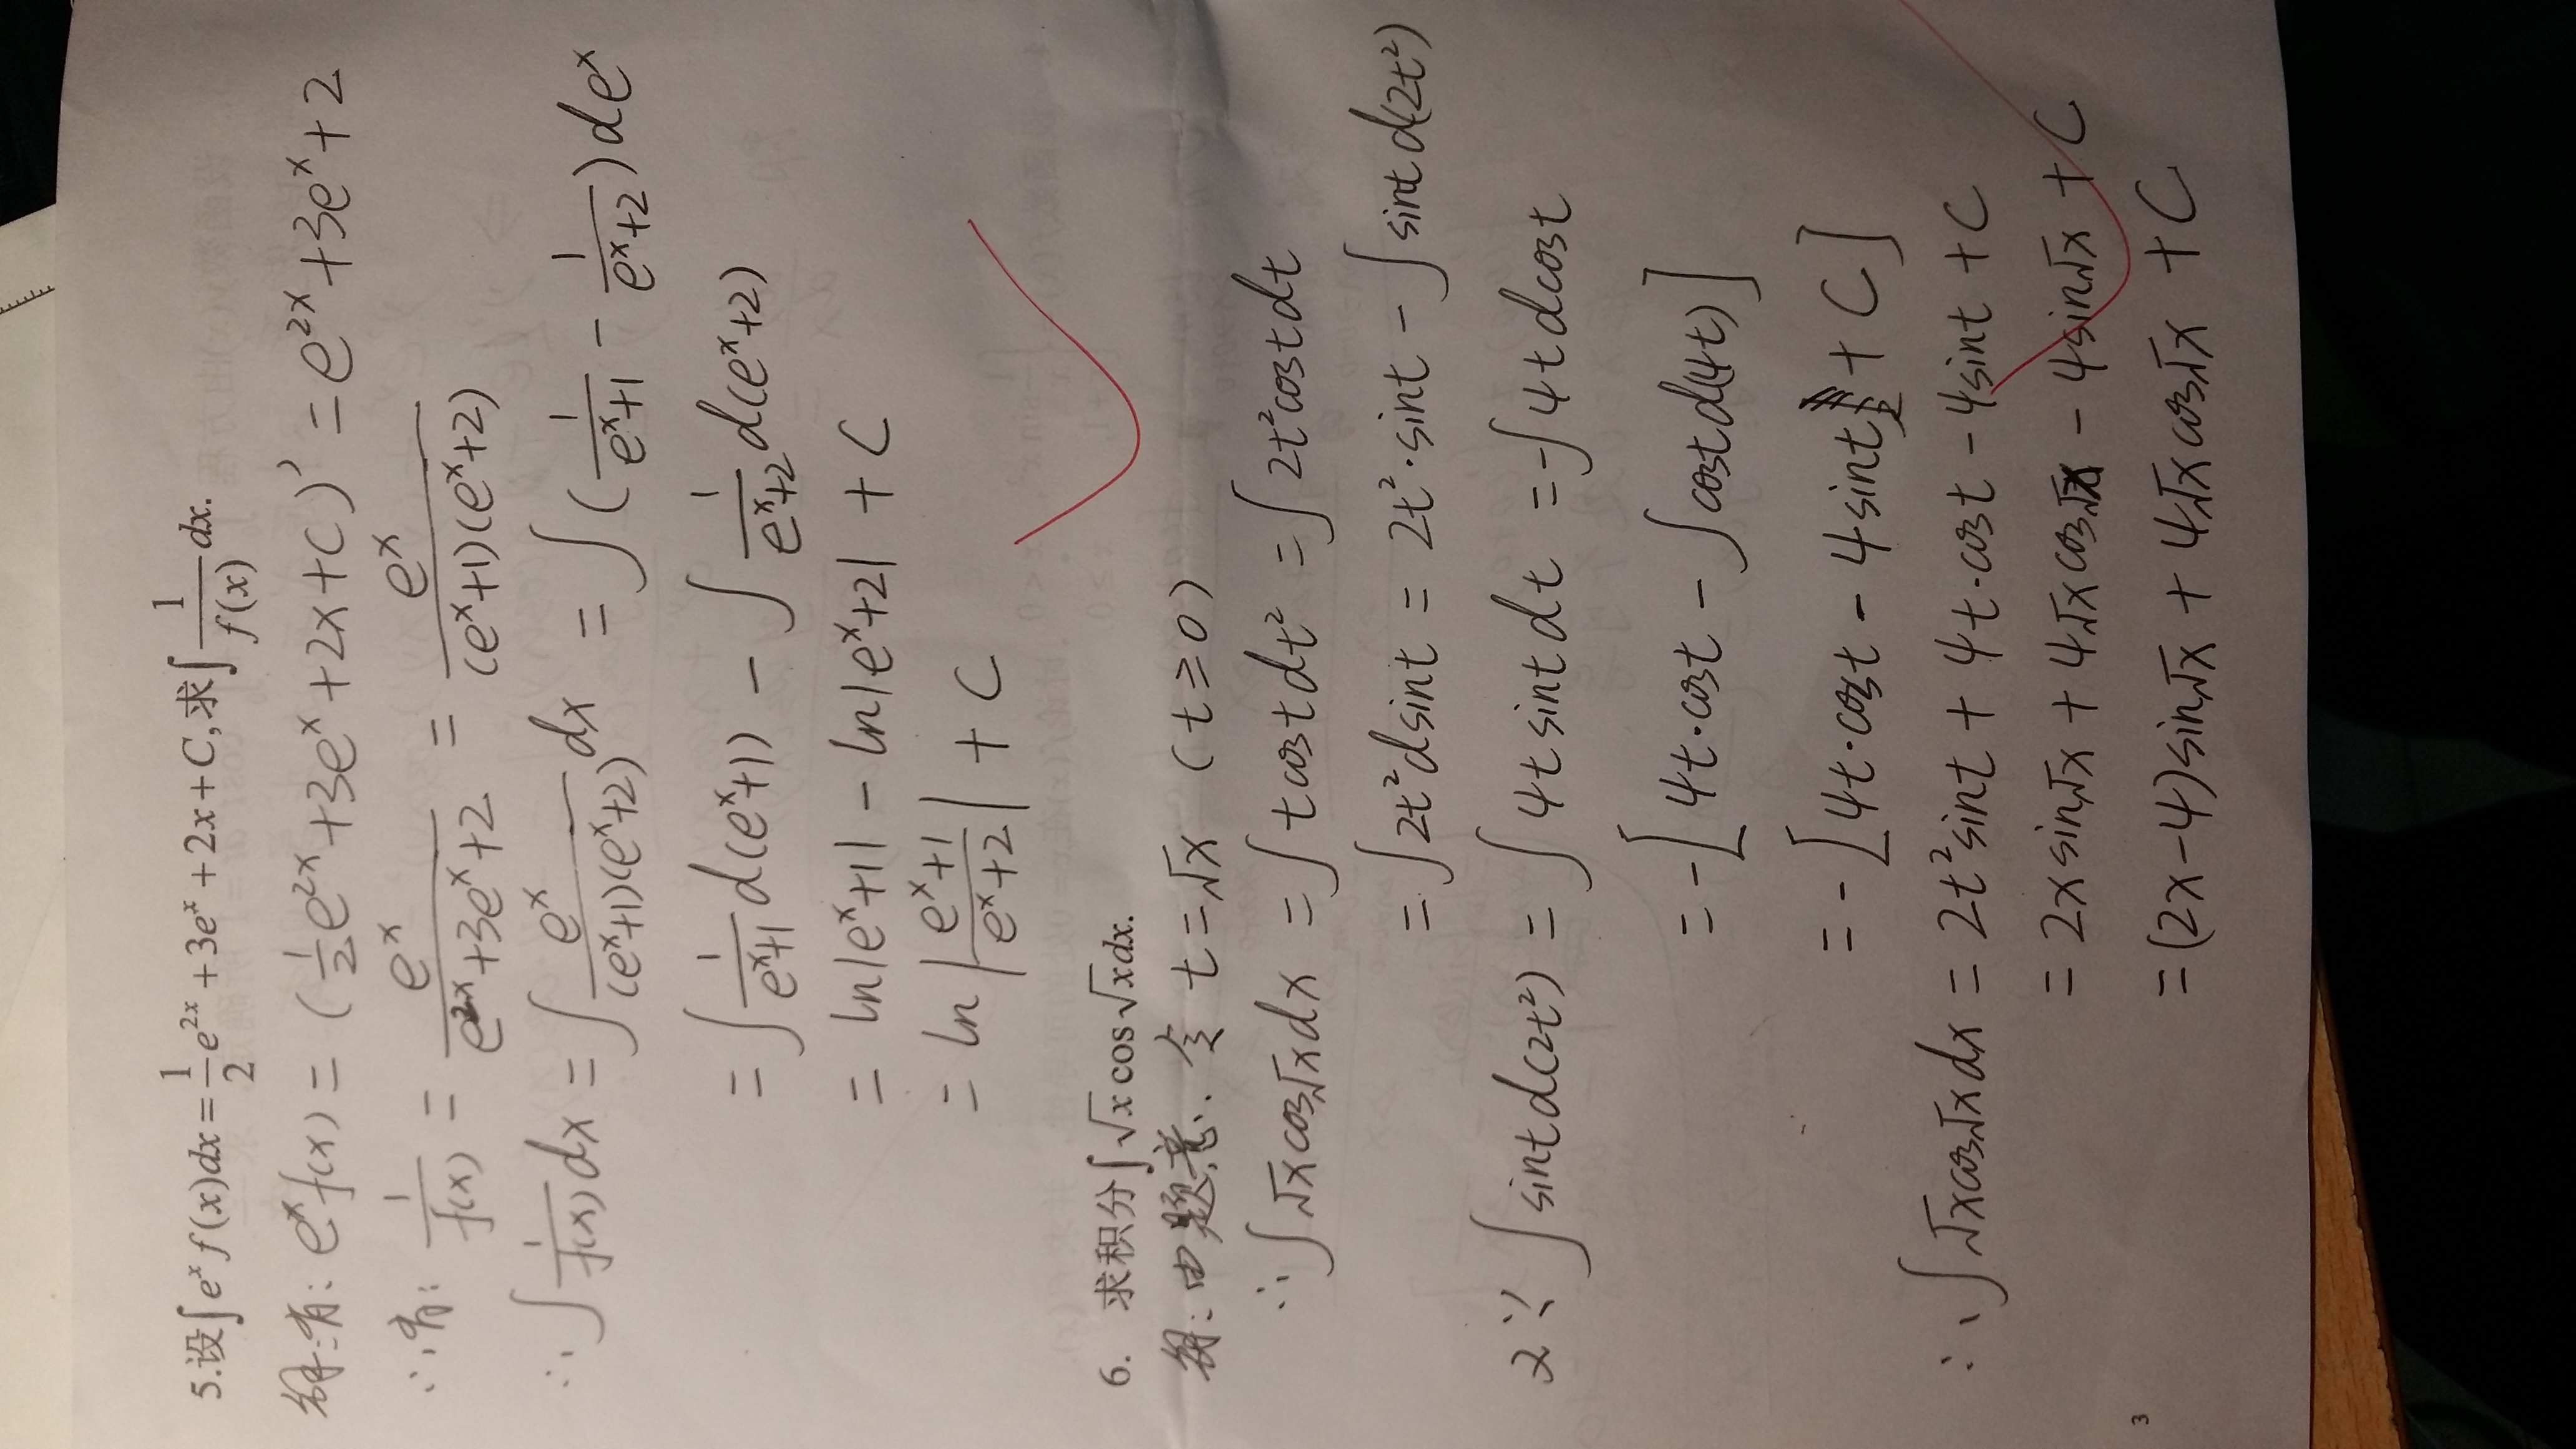 5.设∫eˣf(x)dx=1/2 e²ˣ+3eˣ+2x+C,求∫1/f(x) dx.
解:有: eˣf(x) = (1/2 e²ˣ+3eˣ+2x+C)' = e²ˣ+3eˣ+2
∴有: 1/f(x) = eˣ/(e²ˣ+3eˣ+2) = eˣ/((eˣ+1)(eˣ+2))
∴ ∫1/f(x) dx = ∫eˣ/((eˣ+1)(eˣ+2)) dx = ∫(1/(eˣ+1) - 1/(eˣ+2))deˣ
= ∫1/(eˣ+1) d(eˣ+1) - ∫1/(eˣ+2) d(eˣ+2)
= ln|eˣ+1| - ln|eˣ+2| + C
= ln|(eˣ+1)/(eˣ+2)| + C
6. 求积分∫√x cos√x dx.
解:由题意, 令 t=√x (t≥0)
∴∫√x cos√x dx = ∫t cost dt² = ∫2t² cost dt
= ∫2t² dsint = 2t²·sint - ∫sint d(2t²)
又∵ ∫sint d(2t²) = ∫4t sint dt = -∫4t dcost
= -[4t·cost - ∫cost d(4t)]
= -[4t·cost - 4sint + C]
∴ ∫√x cos√x dx = 2t² sint + 4t·cost - 4sint + C
= 2x sin√x + 4√x cos√x - 4sin√x + C
= (2x-4)sin√x + 4√x cos√x + C
3